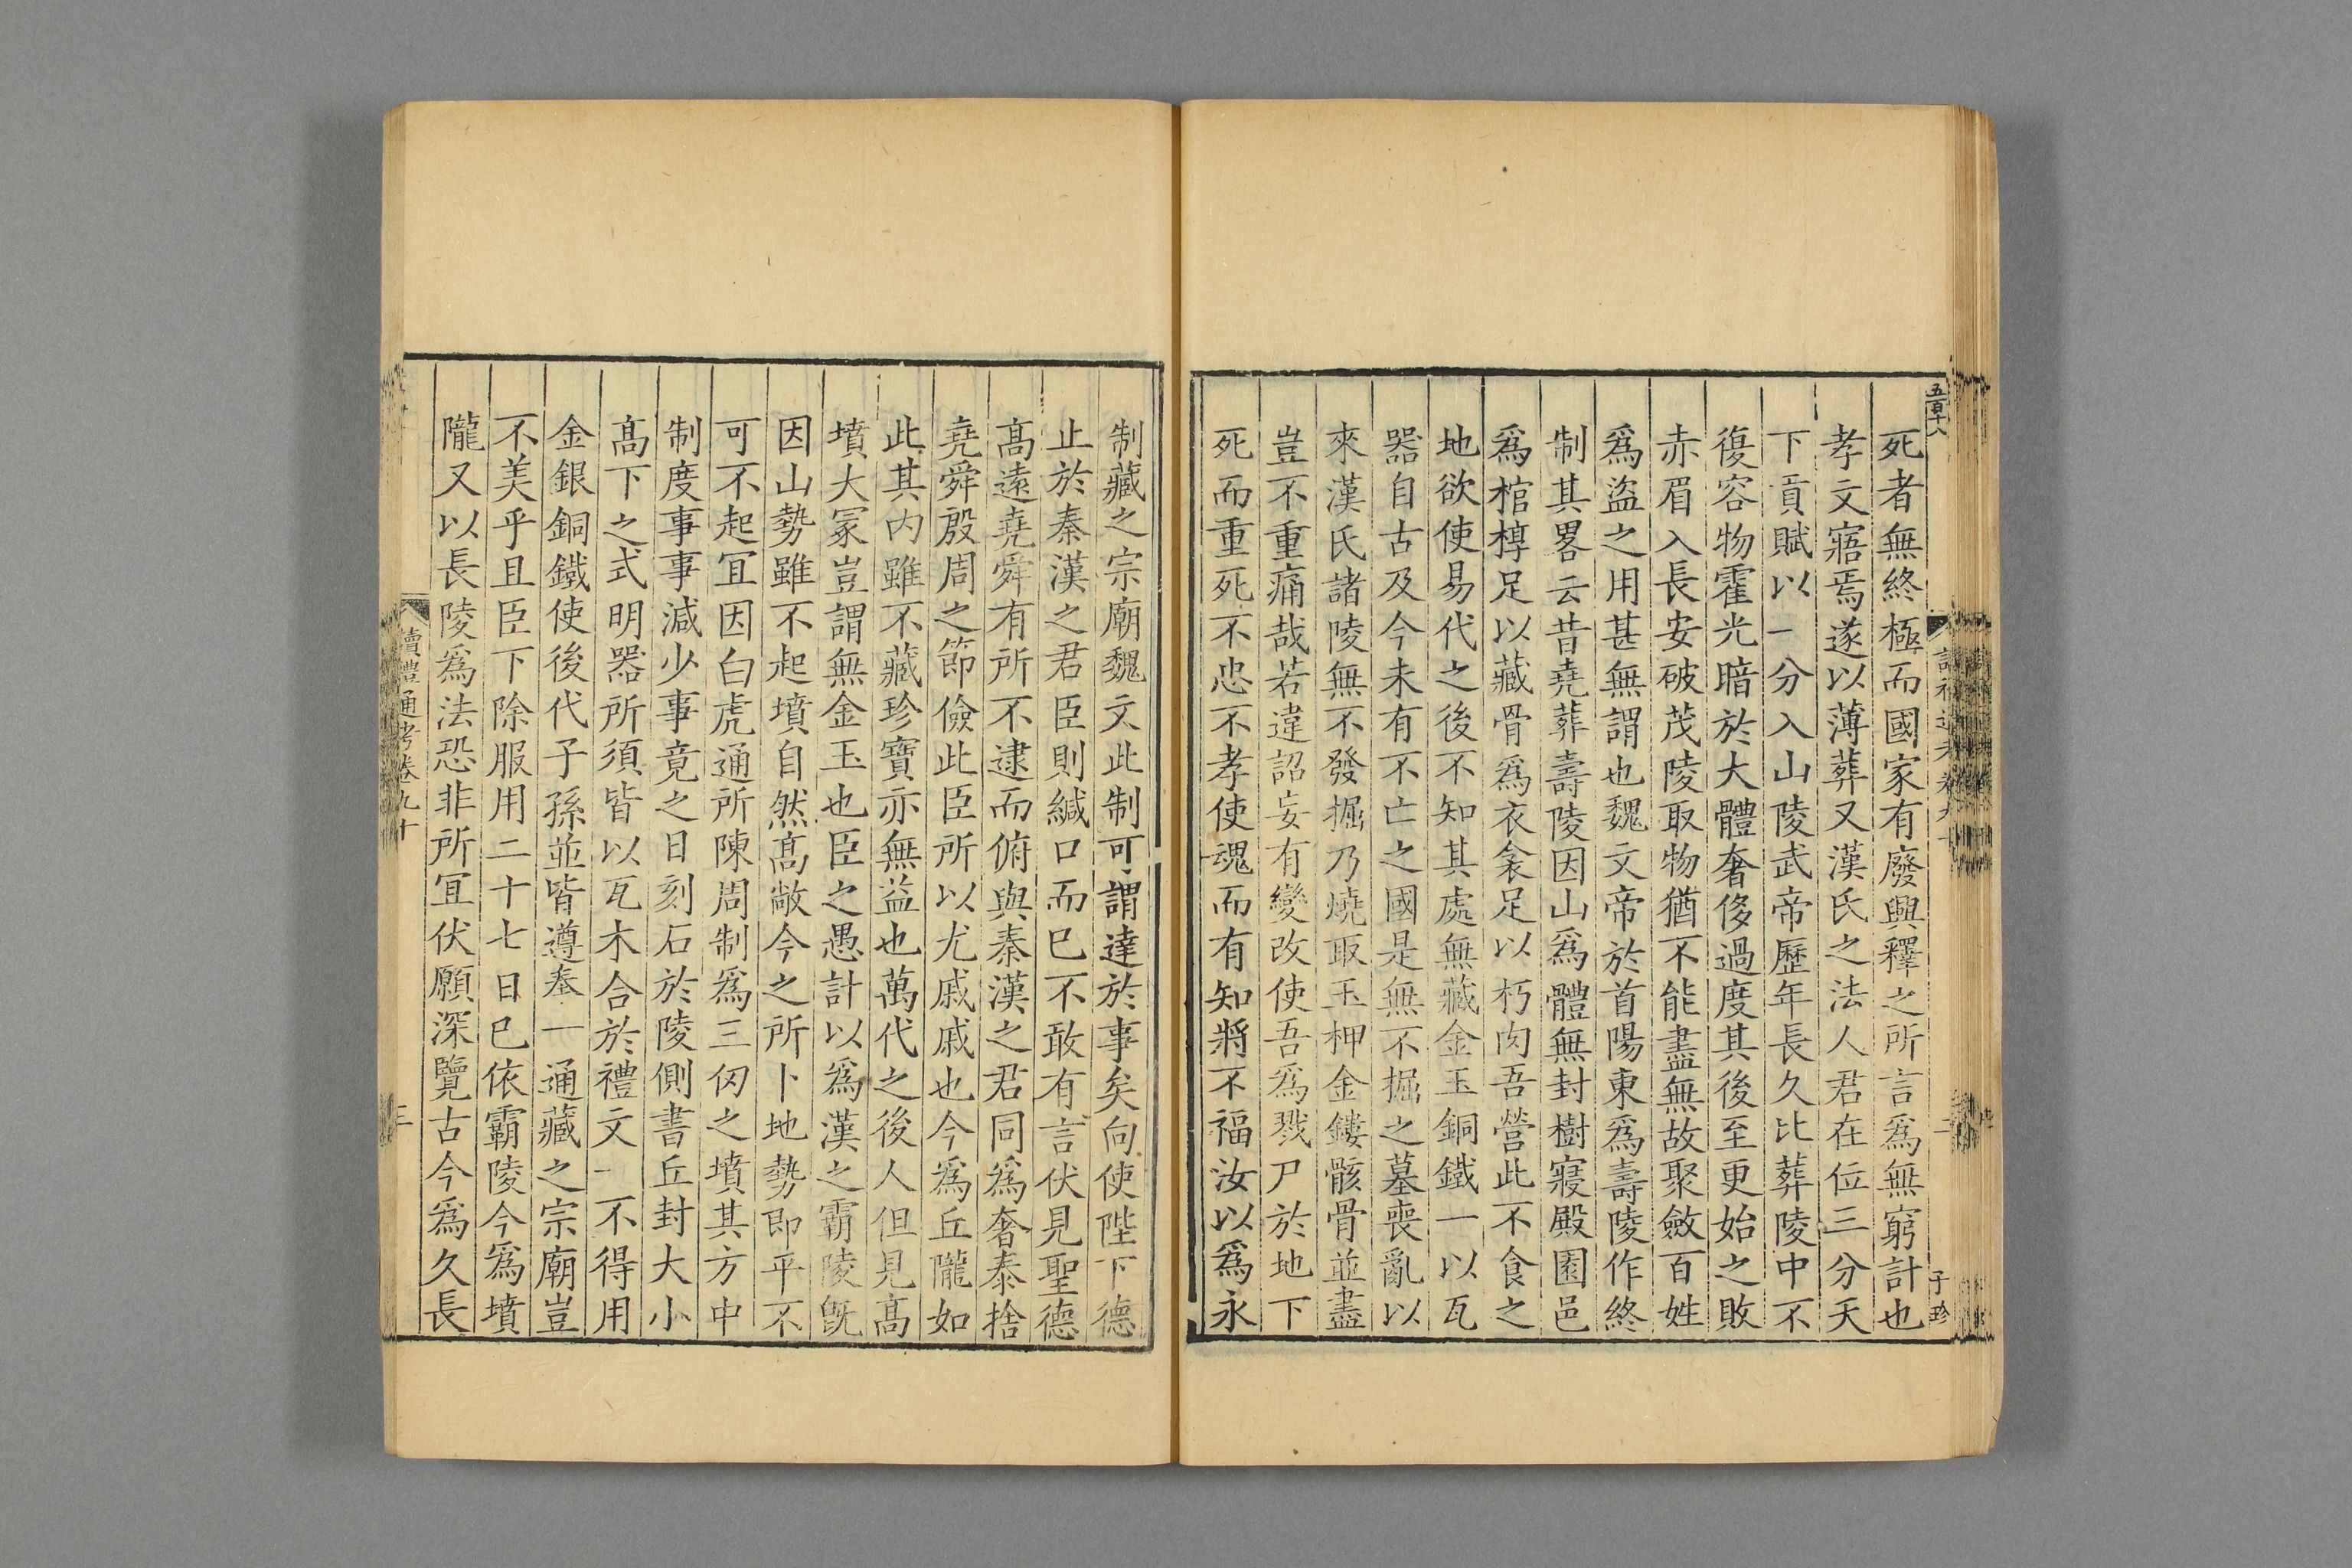 五百十八
子珍
死者無終極而國家有廢興釋之所言爲無窮計也
孝文寤焉遂以薄葬又漢氏之法人君在位三分天
下貢賦以一分入山陵武帝歷年長久比葬陵中不
復容物霍光暗於大體奢侈過度其後至更始之敗
赤眉入長安破茂陵取物猶不能盡無故聚斂百姓
爲盜之用甚無謂也魏文帝於首陽東爲壽陵作終
制其畧云昔堯葬壽陵因山爲體無封樹寢殿園邑
爲棺椁足以藏骨爲衣衾足以朽肉吾營此不食之
地欲使易代之後不知其處無藏金玉銅鐵一以瓦
器自古及今未有不亡之國是無不掘之墓喪亂以
來漢氏諸陵無不發掘乃燒取玉柙金鏤骸骨並盡
豈不重痛哉若違詔妄有變改使吾爲戮尸於地下
死而重死不忠不孝使魂而有知將不福汝以爲永
制藏之宗廟魏文此制可謂達於事矣向使陛下德
止於秦漢之君臣則緘口而已不敢有言伏見聖德
高遠堯舜有所不逮而俯與秦漢之君同爲奢泰捨
堯舜殷周之節儉此臣所以尤戚戚也今爲丘隴如
此其內雖不藏珍寶亦無益也萬代之後人但見高
墳大冢豈謂無金玉也臣之愚計以爲漢之霸陵旣
因山勢雖不起墳自然高敞今之所卜地勢即平不
可不起冝因白虎通所陳周制爲三仞之墳其方中
制度事事減少事竟之日刻石於陵側書丘封大小
高下之式明器所須皆以瓦木合於禮文一不得用
金銀銅鐵使後代子孫並皆遵奉一通藏之宗廟豈
不美乎且臣下除服用二十七日已依霸陵今爲墳
隴又以長陵爲法恐非所冝伏願深覽古今爲久長
讀禮通考卷九十
三